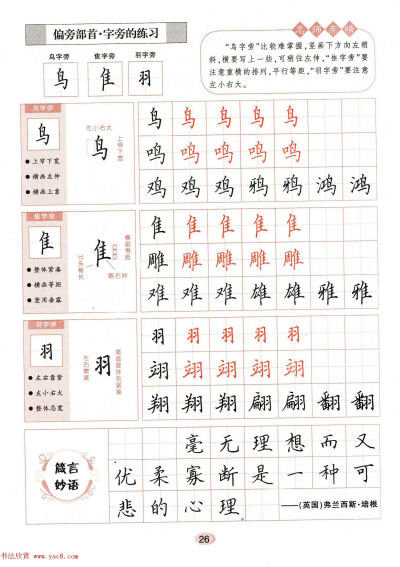 偏旁部首·字旁的练习
鸟字旁 隹字旁 羽字旁
鸟 隹 羽
名师点睛
“鸟字旁”比较难掌握,竖画下方向左稍
斜,横要写上一些,可稍往左伸,“隹字旁”要
注意重横的排列,平行等距,“羽字旁”要注意
左小右大。
鸟字旁
鸟
● 上窄下宽
● 横画左伸
● 横画上靠
左小右大
鸟
上窄下宽
鸟 鸟 鸟 鸟 鸟
鸣 鸣 鸣 鸣 鸣
鸡 鸡 鸡 鸦 鸦 鸿 鸿
隹字旁
隹
● 整体紧凑
● 横画等距
● 竖用垂露
隹
横画等距
略右斜
隹 隹 隹 隹 隹
雕 雕 雕 雕 雕
难 难 难 雄 雄 雅 雅
羽字旁
羽
● 左右靠紧
● 左小右大
● 整体忌宽
左右靠紧
羽
羽 羽 羽 羽 羽
翊 翊 翊 翊 翊
翔 翔 翔 翩 翩 翻 翻
箴言
妙语
毫无理想而又
优柔寡断是一种可
悲的心理。
——(英国)弗兰西斯·培根
26
书法欣赏
www.yac8.com